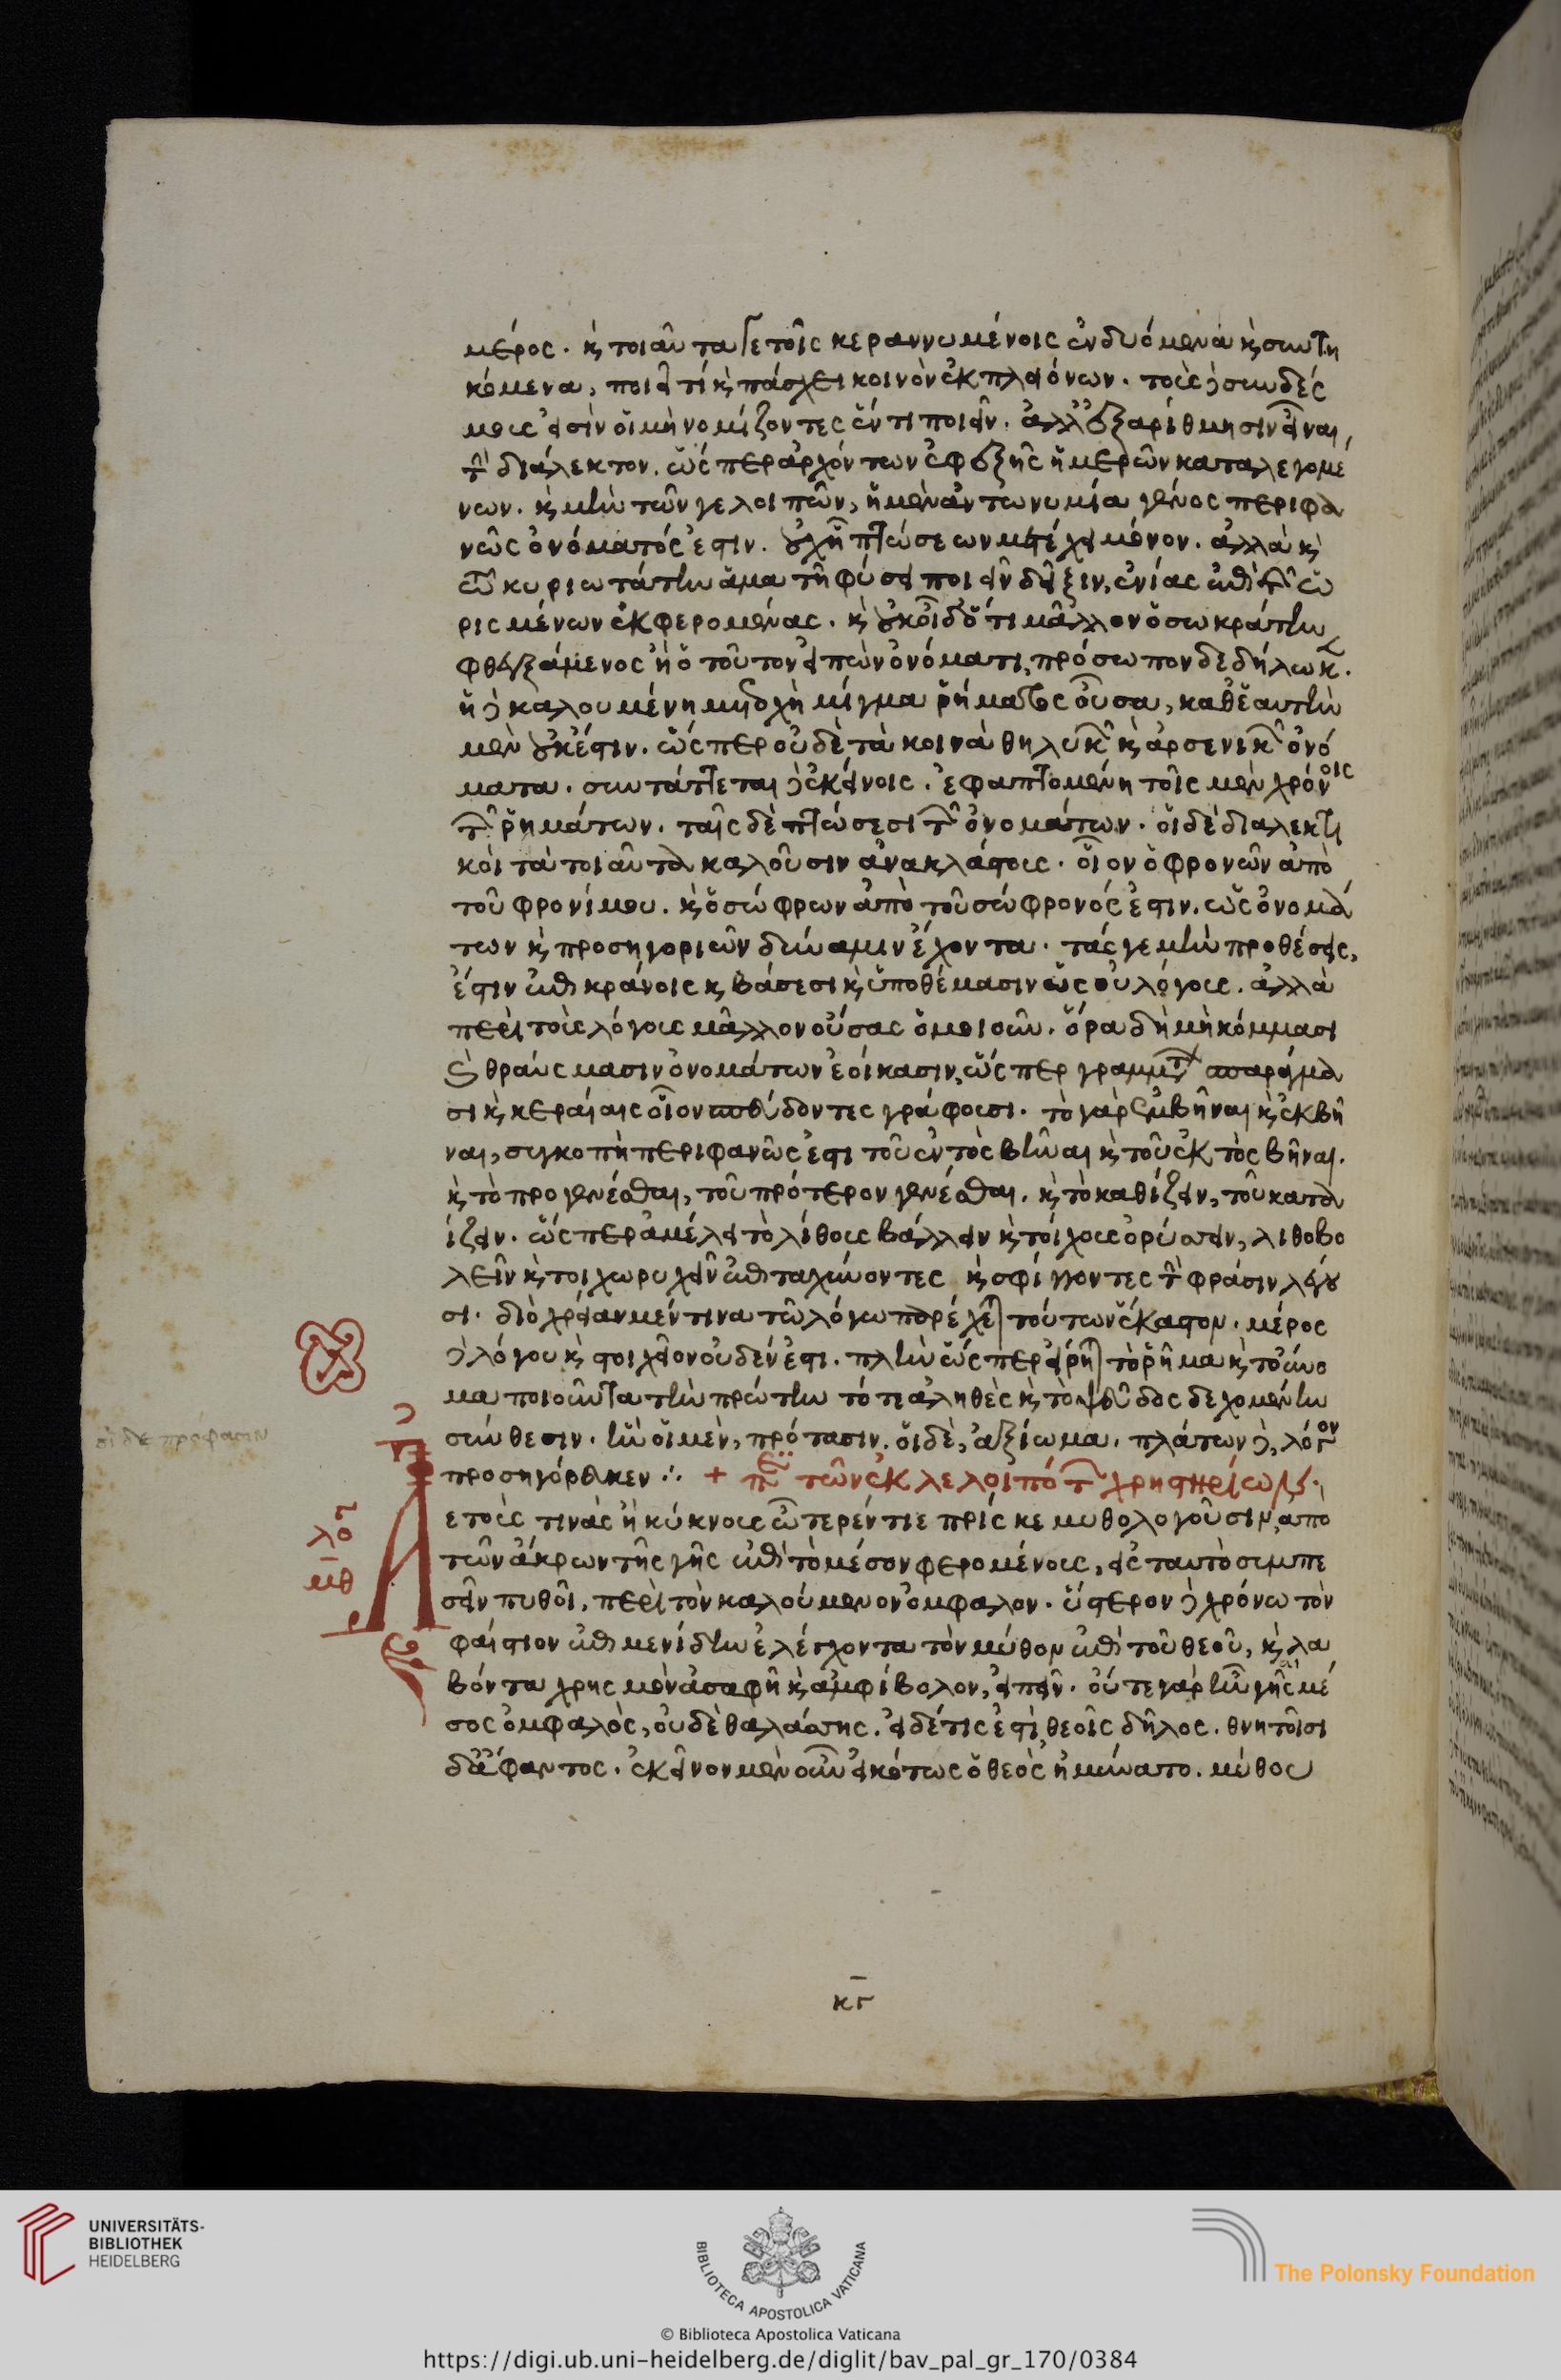 μέρος. κ̀ τοιαῦτα γε τοῖς κεραννυμένοις ἐνδυόμενα κ̀ συντη
κόμενα, ποιεῖ τί κ̀ πάσχει κοινὸν ἐκ πλειόνων. τοὺς δὲ συνδές
μους εἰσὶν οἱ μὴ νομίζοντες ἕν τι ποιεῖν. ἀλλ' ἐξαρίθμησιν εἶναι,
τὴν διάλεκτον. ὥς περ ἀρχόντων ἐφεξῆς ἢ ἡμερῶν καταλεγομέ
νων. κ̀ μὴν τῶν γε λοιπῶν, ἡ μὲν ἀντωνυμία γένος περιφα
νῶς ὀνόματός ἐστιν. οὐχ ἧ πτώσεων μετέχει μόνον. ἀλλὰ κ̀
τῶ κυριωτάτην ἅμα τῆ φύσει ποιεῖν δεῖξιν, ἐνίας ἐπὶ τῶν ὡ
ρισμένων ἐκφερομένας. κ̀ οὐκ οἶδ' ὅτι μᾶλλον ὁ σωκράτην
φθεγξάμενος ἢ ὁ τοῦτον εἰπὼν ὀνόματι, πρόσωπον δεδήλωκεν.
ἡ δὲ καλουμένη μετοχὴ μίγμα ῥήματος οὖσα, καθ' ἑαυτὴν
μὲν οὐκ ἔστιν. ὥς περ οὐδὲ τὰ κοινὰ θηλυκῶν κ̀ ἀρσενικῶν ὀνό
ματα. συντάττεται δὲ ἐκείνοις. ἐφαπτομένη τοῖς μὲν χρόνοις
τῶν ῥημάτων. ταῖς δὲ πτώσεσι τῶν ὀνομάτων. οἱ δὲ διαλεκτι
κοὶ τὰ τοιαῦτα καλοῦσιν ἀνακλάστους. οἷον ὁ φρονῶν ἀπὸ
τοῦ φρονίμου. κ̀ ὁ σώφρων ἀπὸ τοῦ σώφρονός ἐστιν. ὡς ὀνομά
των κ̀ προσηγοριῶν δύναμιν ἔχοντα. τάς γε μὴν προθέσεις,
ἔστιν ἐπικράνοις κ̀ βάσεσι κ̀ ὑποθέμασιν ὡς οὐ λόγους. ἀλλὰ
περὶ τοὺς λόγους μᾶλλον οὔσας ὁμοιοῦν. ὅρα δὴ μὴ κόμμασι
κ̀ θραύσμασιν ὀνομάτων ἐοίκασιν, ὥς περ γραμμάτων σπαράγμα
σι κ̀ κεραίαις οἷον σπεύδοντες γράφουσι. τὸ γὰρ ἐμβῆναι κ̀ ἐκβῆ
ναι, συγκοπὴ περιφανῶς ἐστι τοῦ ἐντὸς βῆναι κ̀ τοῦ ἐκτὸς βῆναι.
κ̀ τὸ προγενέσθαι, τοῦ πρότερον γενέσθαι. κ̀ τὸ καθίζειν, τοῦ κάτω
ίζειν. ὥς περ ἀμέλει τὸ λίθους βάλλειν κ̀ τοίχους ὀρύσσειν, λιθοβο
λεῖν κ̀ τοιχωρυχεῖν ἐπιταχύνοντες κ̀ σφίγγοντες τὴν φράσιν λέγου
σι. διὸ χρείαν μέν τινα τῶ λόγω παρέχεται τούτων ἕκαστον. μέρος
δὲ λόγου κ̀ στοιχεῖον οὐδέν ἐστι. πλὴν ὥς περ εἴρηται τὸ ῥῆμα κ̀ τὸ ὄνο
μα ποιοῦντα τὴν πρώτην τό τε ἀληθὲς κ̀ τὸ ψεῦδος δεχομένην
σύνθεσιν. ἣν οἱ μὲν, πρότασιν. οἱ δὲ, ἀξίωμα. πλάτων δὲ, λόγον
προσηγόρευκεν ∴ + περὶ τῶν ἐκλελοιπότων χρηστηρίων
Ἀετούς τινας ἢ κύκνους ὦ τερέντιε πρίσκε μυθολογοῦσιν, ἀπὸ
τῶν ἄκρων τῆς γῆς ἐπὶ τὸ μέσον φερομένους, εἰς ταυτὸ συμπε
σεῖν πυθοῖ, περὶ τὸν καλούμενον ὀμφαλον. ὕστερον δὲ χρόνω τὸν
φαίστιον ἐπιμενίδην ἐλέγχοντα τὸν μῦθον ἐπὶ τοῦ θεοῦ, κ̀ λα
βόντα χρησμὸν ἀσαφῆ κ̀ ἀμφίβολον, εἰπεῖν. οὔτε γὰρ ἦν γῆς μέ
σος ὀμφαλὸς, οὐδὲ θαλάσσης. εἰ δέ τις ἐστὶ, θεοῖς δῆλος. θνητοῖσι
δ' ἄφαντος. ἐκεῖνον μὲν οὖν εἰκότως ὁ θεὸς ἠμύνατο. μύθου
οἱ δὲ πρόφασιν
λόγ
μθ
κγ
UNIVERSITÄTS-
BIBLIOTHEK
HEIDELBERG
BIBLIOTECA APOSTOLICA VATICANA
The Polonsky Foundation
© Biblioteca Apostolica Vaticana
https://digi.ub.uni-heidelberg.de/diglit/bav_pal_gr_170/0384